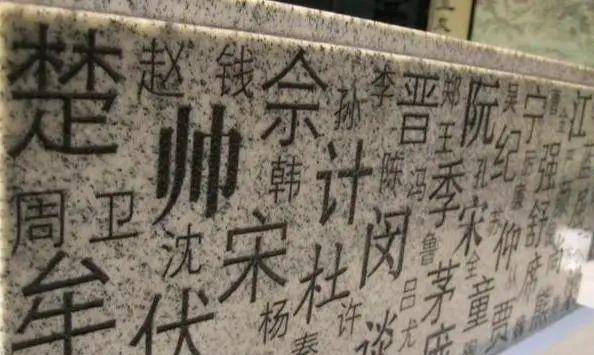 楚 赵 钱 佘 孙 李 晋 郑 阮 吴 宁 江
帅 韩 计 陈 冯 王 季 孔 纪 强
周 卫 沈 宋 杜 闵 鲁 宋 苏 仲 舒
牟 伏 杨 秦 许 谈 吕 尤 茅 全 童 贾 席 熊 尚